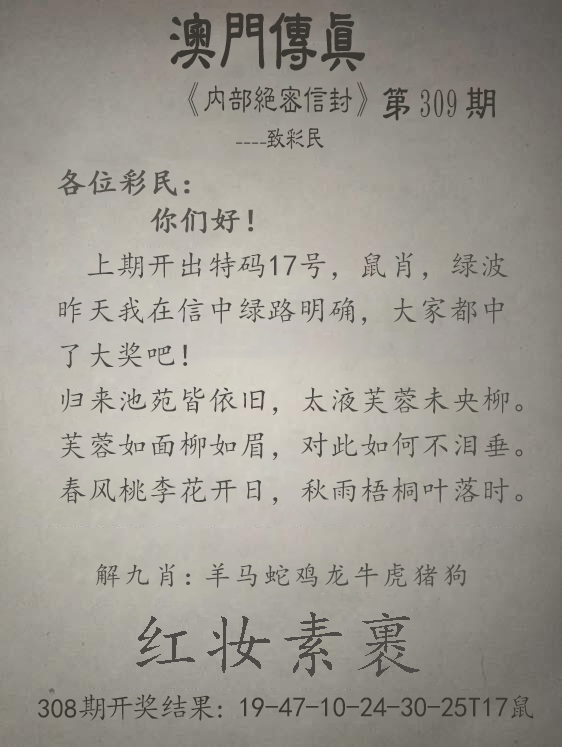 澳門傳真
《内部絕密信封》第309期
----致彩民
各位彩民：
你们好！
上期开出特码17号，鼠肖，绿波
昨天我在信中绿路明确，大家都中
了大奖吧！
归来池苑皆依旧，太液芙蓉未央柳。
芙蓉如面柳如眉，对此如何不泪垂。
春风桃李花开日，秋雨梧桐叶落时。
解九肖：羊马蛇鸡龙牛虎猪狗
红妆素裹
308期开奖结果：19-47-10-24-30-25T17鼠